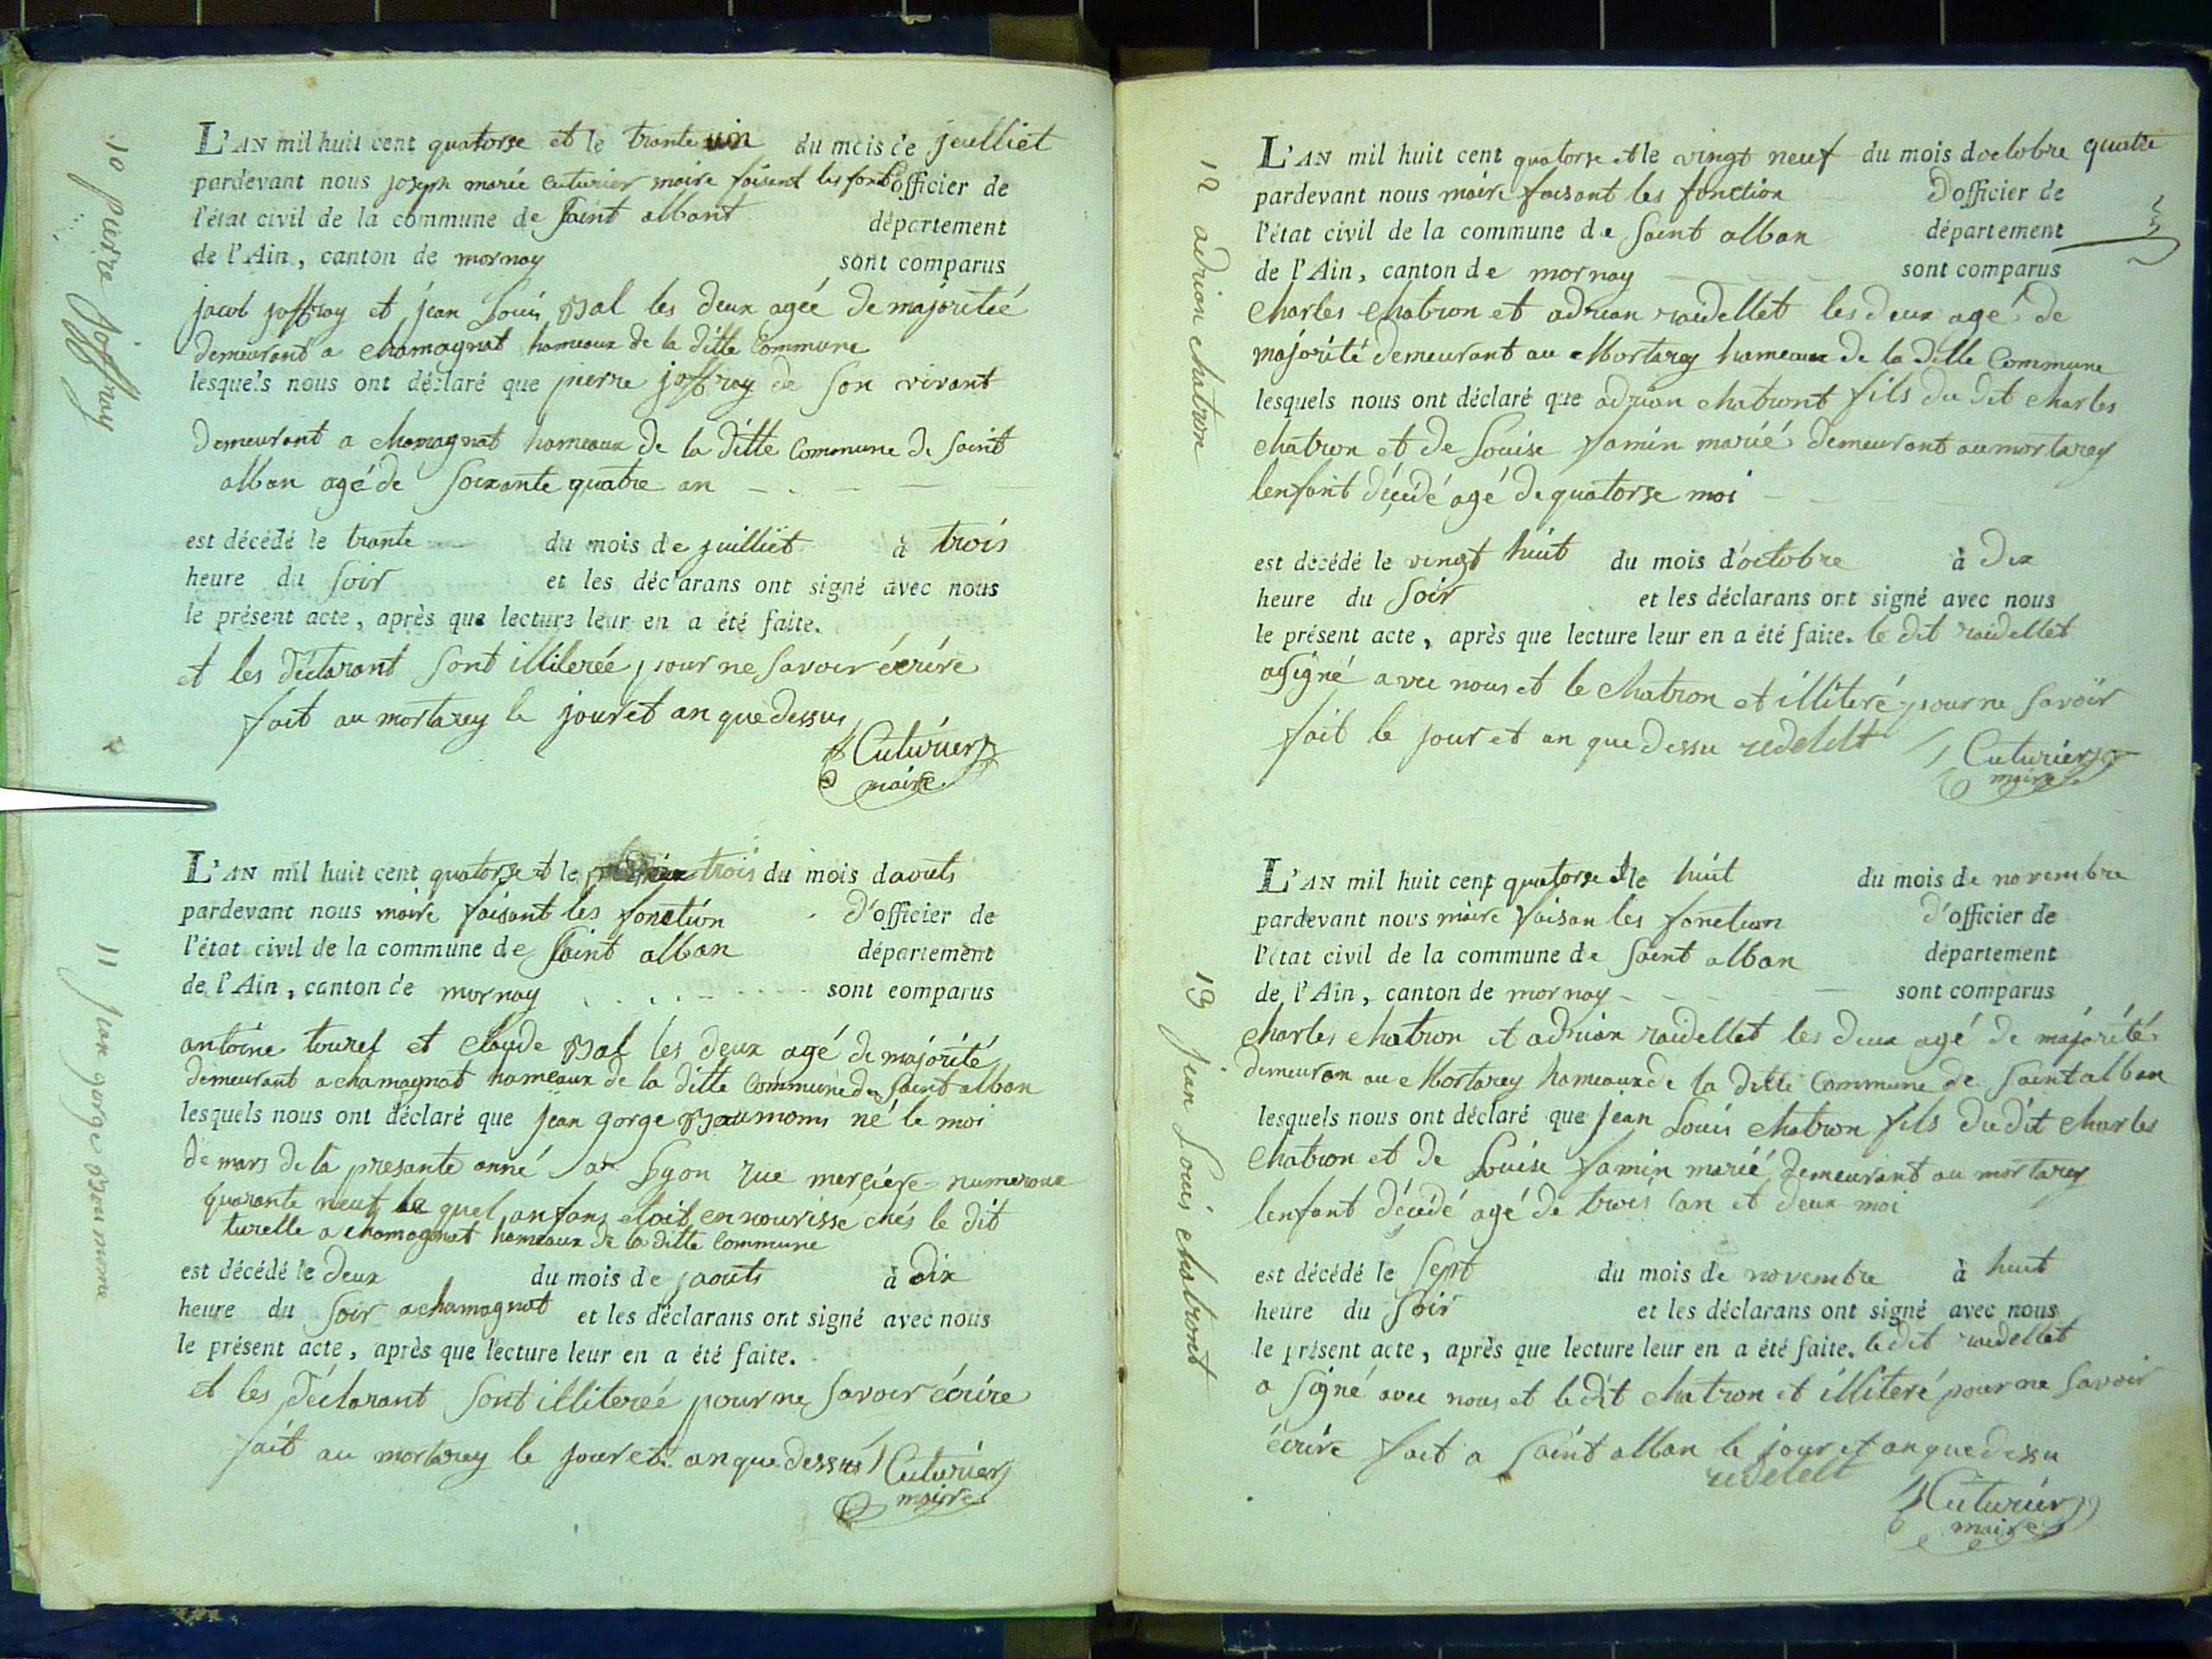 10 pierre joffray
L'AN mil huit cent quatorse et le trante un du mois de jeulliet
pardevant nous joseph marie Cuturier maire faisent les font officier de
l'état civil de la commune de saint albant département
de l'Ain, canton de mornay sont comparus
jacob joffray et jean Louis Bal les deux ageé de majoriteé
demeurant a chamagnat hameaux de la ditte Commune
lesquels nous ont déclaré que pierre joffray de son vivant
demeurant a chamagnat hameaux de la ditte Commune de saint
alban agé de soixante quatre an
est décédé le trante du mois de juilliet à trois
heure du soir et les déclarans ont signé avec nous
le présent acte, après que lecture leur en a été faite.
et les déclarant sont illitereé pour ne savoir écrire
fait au mortarey le jour et an que dessus
Cuturier
maire
11 jean gorge
L'AN mil huit cent quatorse et le trois du mois daouts
pardevant nous maire faisant les fonction D'officier de
l'état civil de la commune de saint alban département
de l'Ain, canton de mornay sont comparus
antoine tourel et claude Bal les deux agé de majorité
demeurant a chamagnat hameaux de la ditte Commune de saint alban
lesquels nous ont déclaré que jean gorge né le moi
de mars de la presante anné a Lyon rue merciere numeroux
quarante neuf le quel anfans etoit en nourisse chés le dit
turelle a chamagnat hameaux de la ditte Commune
est décédé le deux du mois de jaouts à dix
heure du soir a chamagnat et les déclarans ont signé avec nous
le présent acte, après que lecture leur en a été faite.
et les déclarant sont illitereé pour ne savoir écrire
fait au mortarey le jour et an que dessus Cuturier
maire
12 adrian chatron
L'AN mil huit cent quatorse et le vingt neuf du mois doctobre quatre
pardevant nous maire faisant les fonction D'officier de
l'état civil de la commune de saint alban département
de l'Ain, canton de mornay sont comparus
charles chatron et adrian raidellet les deux agé de
majorité demeurant au Mortarey hameaux de la ditte Commune
lesquels nous ont déclaré que adrian chatront fils du dit charles
chatron et de Louise jamin marié demeurant au mortarey
lenfant décédé agé de quatorse moi
est décédé le vingt huit du mois d'octobre à dix
heure du soir et les déclarans ont signé avec nous
le présent acte, après que lecture leur en a été faite. le dit raidellet
a signé avec nous et le chatron et illiteré pour ne savoir
fait le jour et an que dessu redelelt Cuturier
maire
13 jean Louis chatront
L'AN mil huit cent quatorse et le huit du mois de novembre
pardevant nous maire faisan les fonction d'officier de
l'état civil de la commune de saint alban département
de l'Ain, canton de mornay sont comparus
charles chatron et adrian raidellet les deux agé de majorité
demeuran au Mortarey hameaux de la ditte Commune de saint alban
lesquels nous ont déclaré que jean Louis chatron fils du dit charles
chatron et de Louise jamin marié demeurant au mortarey
lenfant décédé agé de trois an et deux moi
est décédé le sept du mois de novembre à huit
heure du soir et les déclarans ont signé avec nous
le présent acte, après que lecture leur en a été faite. le dit raidellet
a signé avec nous et le dit chatron et illiteré pour ne savoir
écrire fait a saint alban le jour et an que dessu
redelelt
Cuturier
maire